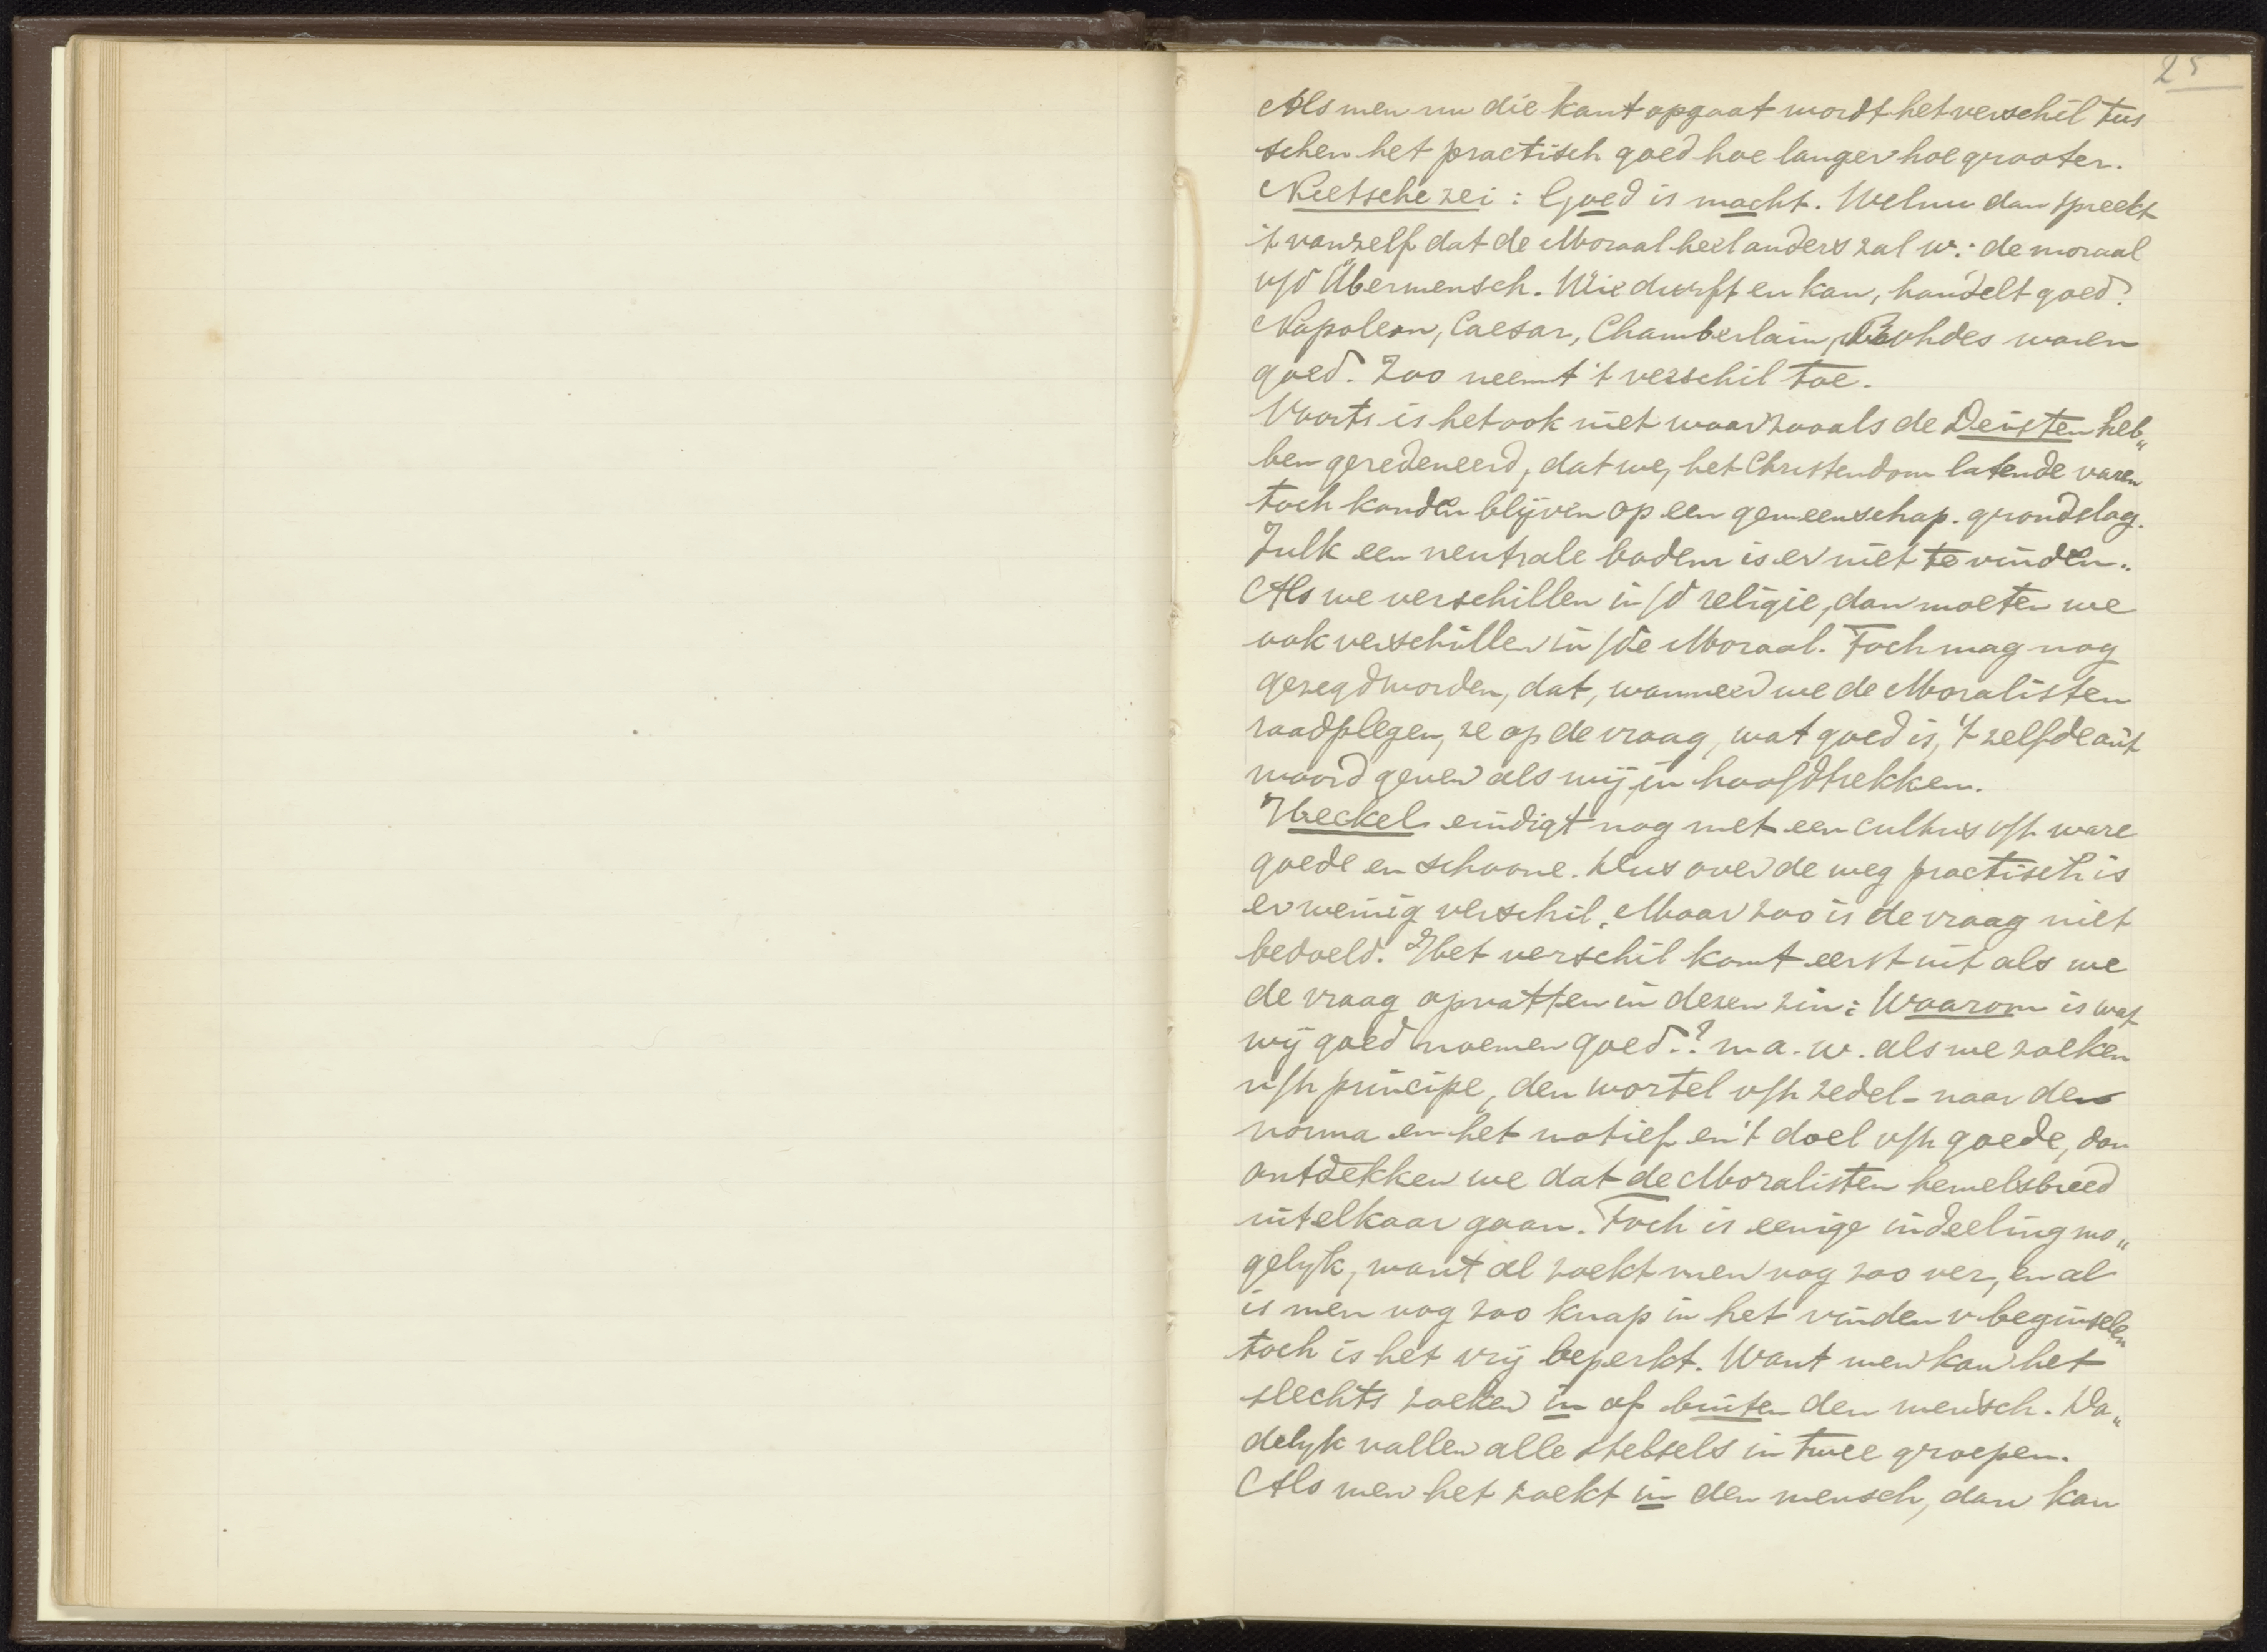 25
Als men nu die kant opgaat wordt het verschil tus
schen het practisch goed hoe langer hoe grooter.
Nietsche zei: Goed is macht. Welnu dan spreekt
't vanzelf dat de Moraal heel anders zal w.: de moraal
v/d Übermensch. Wie durft en kan, handelt goed.
Napoleon, Caesar, Chamberlain, Rohdes waren
goed. Zoo neemt 't verschil toe.
Voorts is het ook niet waar zooals de Deisten heb„
ben geredeneerd, dat we, het Christendom latende varen
toch konden blijven op een gemeenschap. grondslag.
Zulk een neutrale bodem is er niet te vinden.
Als we verschillen in/d religie, dan moeten we
ook verschillen in/de Moraal. Toch mag nog
gezegd worden, dat, wanneer we de Moralisten
raadplegen, ze op de vraag, wat goed is, 't zelfde ant
woord geven als wij, in hoofdtrekken.
Heckel eindigt nog met een cultus v/h ware
goede en schoone. Dus over de weg practisch is
er weinig verschil. Maar zoo is de vraag niet
bedoeld. Het verschil komt eerst uit als we
de vraag opvatten in dezen zin: Waarom is wat
wij goed noemen goed? m.a.w. als we zoeken
n/h principe, den wortel v/h zedel- naar de
norma en het motief en 't doel v/h goede, dan
ontdekken we dat de Moralisten hemelsbreed
uitelkaar gaan. Toch is eenige indeeling mo„
gelyk, want al zoekt men nog zoo ver, en al
is men nog zoo knap in het vinden v beginselen
toch is het vrij beperkt. Want men kan het
slechts zoeken in of buiten den mensch. Da„
delyk vallen alle stelsels in twee groepen.
Als men het zoekt in den mensch, dan kan